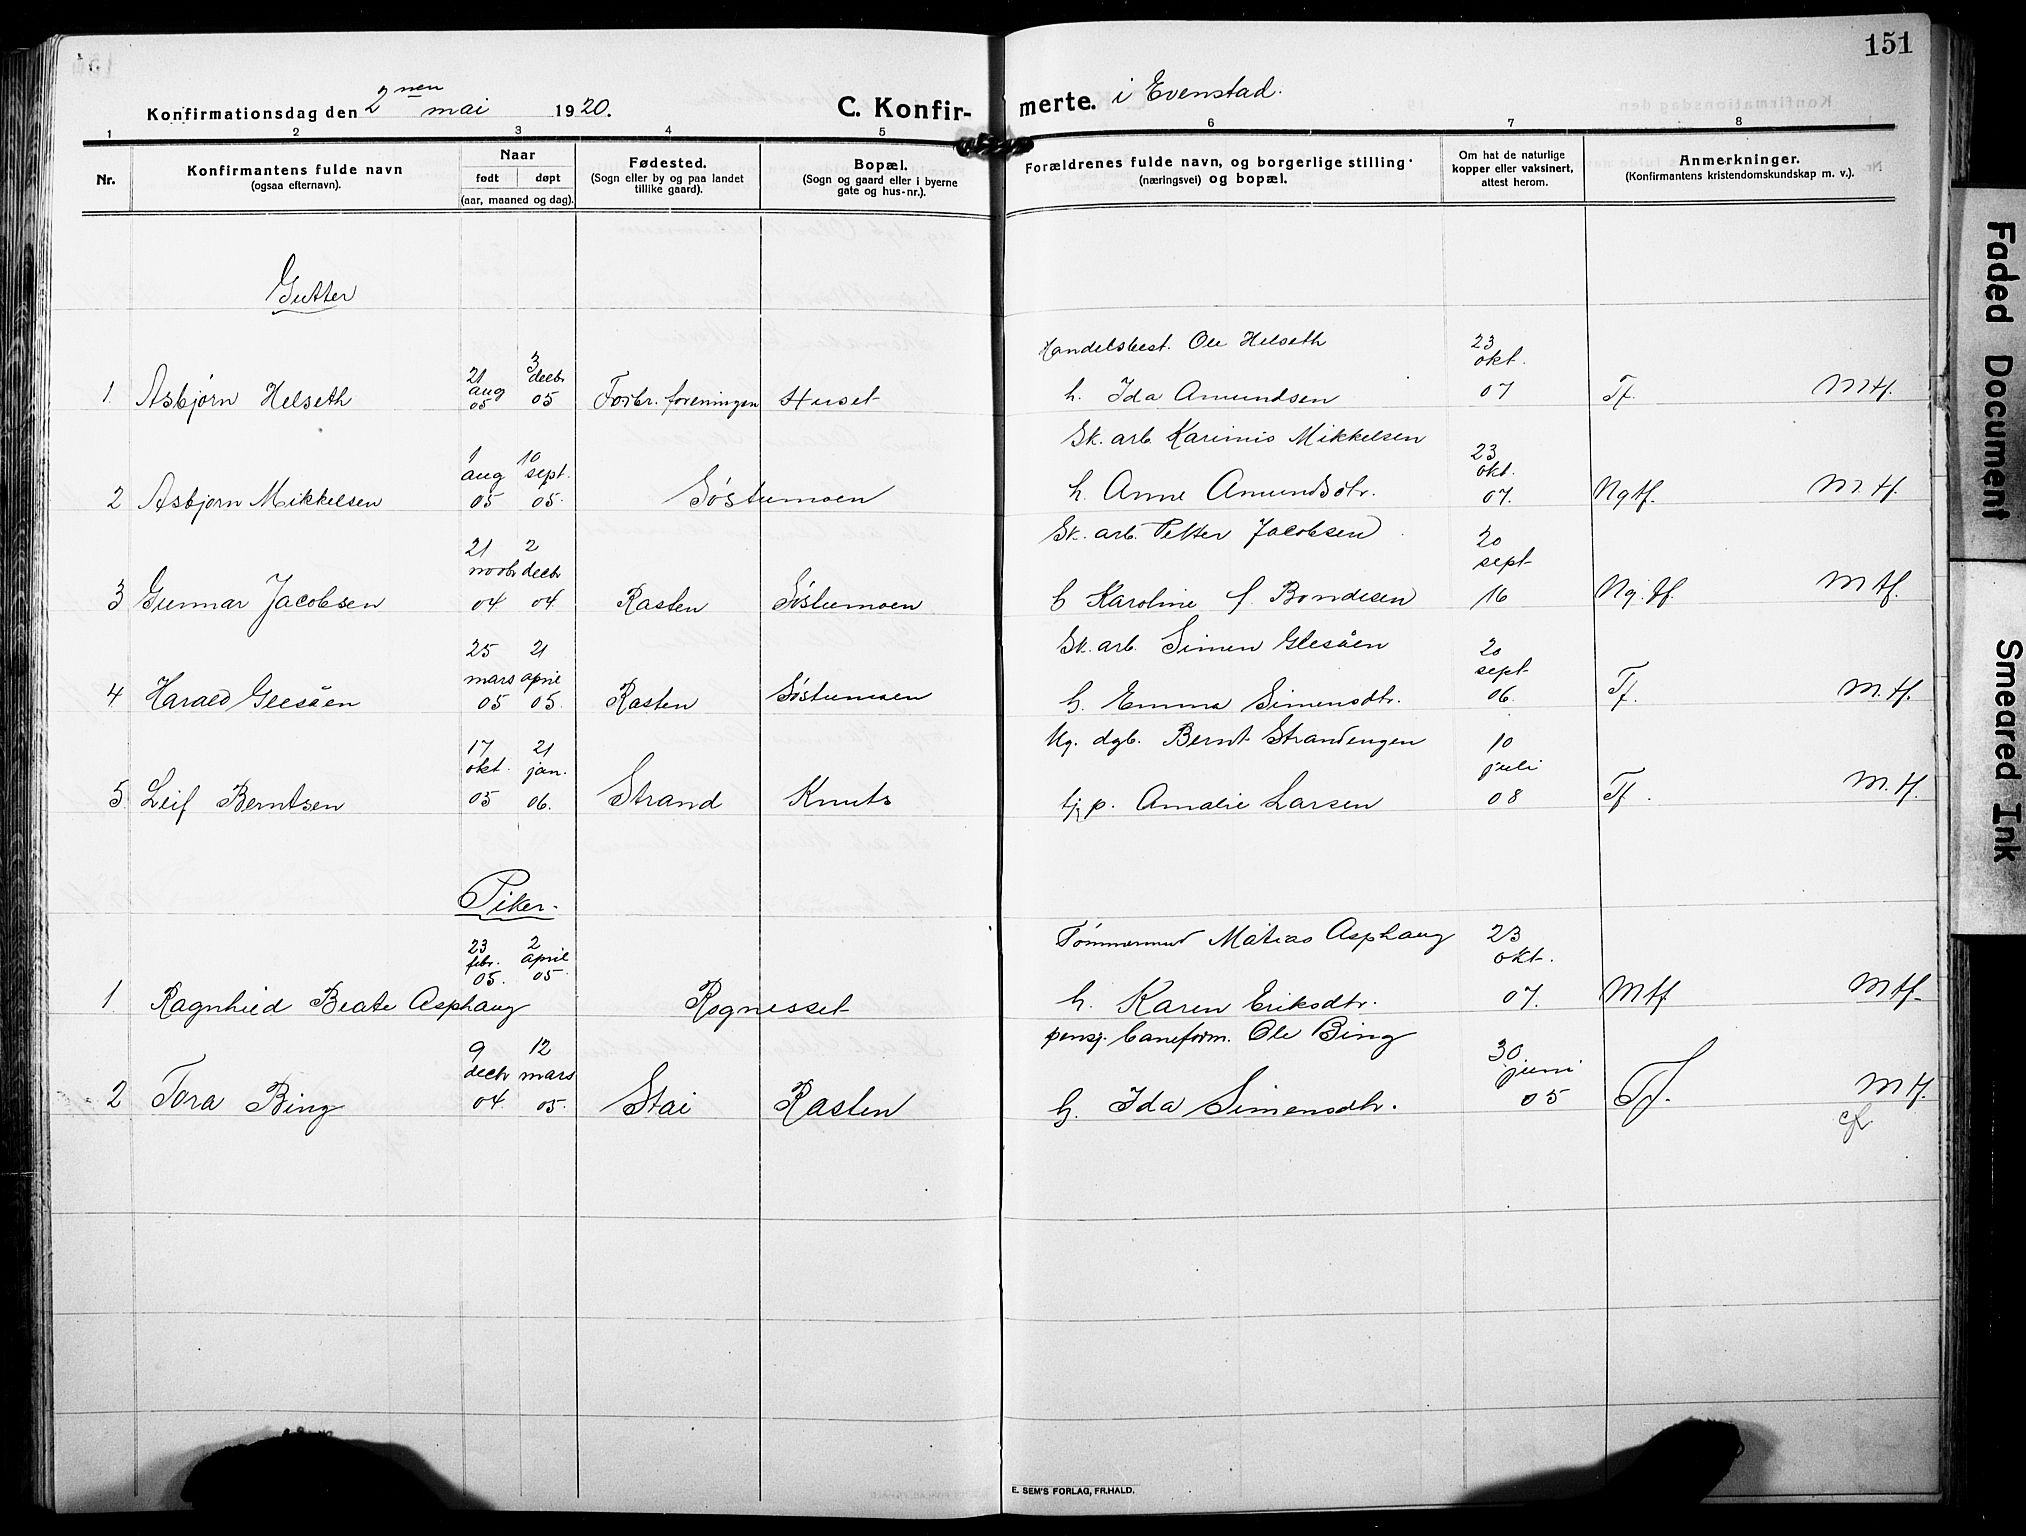 151
Konfirmationsdag den 2nen mai 1920. C. Konfirmerte. i Evenstad.
1 2 3 4 5 6 7 8
Nr.
Konfirmantens fulde navn
(ogsaa efternavn).
Naar
født døpt
(aar, maaned og dag).
Fødested.
(Sogn eller by og paa landet
tillike gaard).
Bopæl.
(Sogn og gaard eller i byerne
gate og hus-nr.).
Forældrenes fulde navn, og borgerlige stilling
(næringsvei) og bopæl.
Om hat de naturlige
kopper eller vaksinert,
attest herom.
Anmerkninger.
(Konfirmantens kristendomskundskap m. v.).
Gutter
1. Asbjørn Helseth 21 aug 05 3 decbr 05 Forbr. foreningen Huset Handelsbest. Ole Helseth
h. Ida Amundsen 23 okt. 07 Tf. Mtf.
2 Asbjørn Mikkelsen 1 aug 05 10 sept. 05. Søstumoen Sk. arb. Karinius Mikkelsen
h. Anne Amundsdtr. 23 okt. 07. Ngtf. M.tf.
3 Gunnar Jacobsen 21 novbr 04 2 decbr 04 Rasten Søstumoen Sk. arb. Petter Jacobsen
h Karoline f. Bondesen 20 sept 16 Ng.tf. Mtf.
4 Harald Glesåen 25 mars 05 21 april 05. Rasten Søstumoen Sk. arb. Simen Glesåen
h. Emma Simensdtr. 20 sept 06. Tf. M.tf.
5. Leif Berntsen 17 okt. 05 21 jan. 06. Strand Knuts Ug. dgb. Bernt Strandengen
tj p. Amalie Larsen 10 juli 08 Tf. M.tf.
Piker.
1. Ragnhild Beate Asphaug 23 febr. 05. 2 april 05. Rognesset Tømmermd Matias Asphaug
h. Karen Eriksdtr. 23 okt. 07. Mtf Mtf
2 Tora Bing 9 decbr 04 12 mars 05. Stai Rasten pensj. baneform. Ole Bing
h. Ida Simensdtr. 30 juni 05 Tf. Mtf.
E. SEM'S FORLAG, FR.HALD.
Faded Document
Smeared Ink